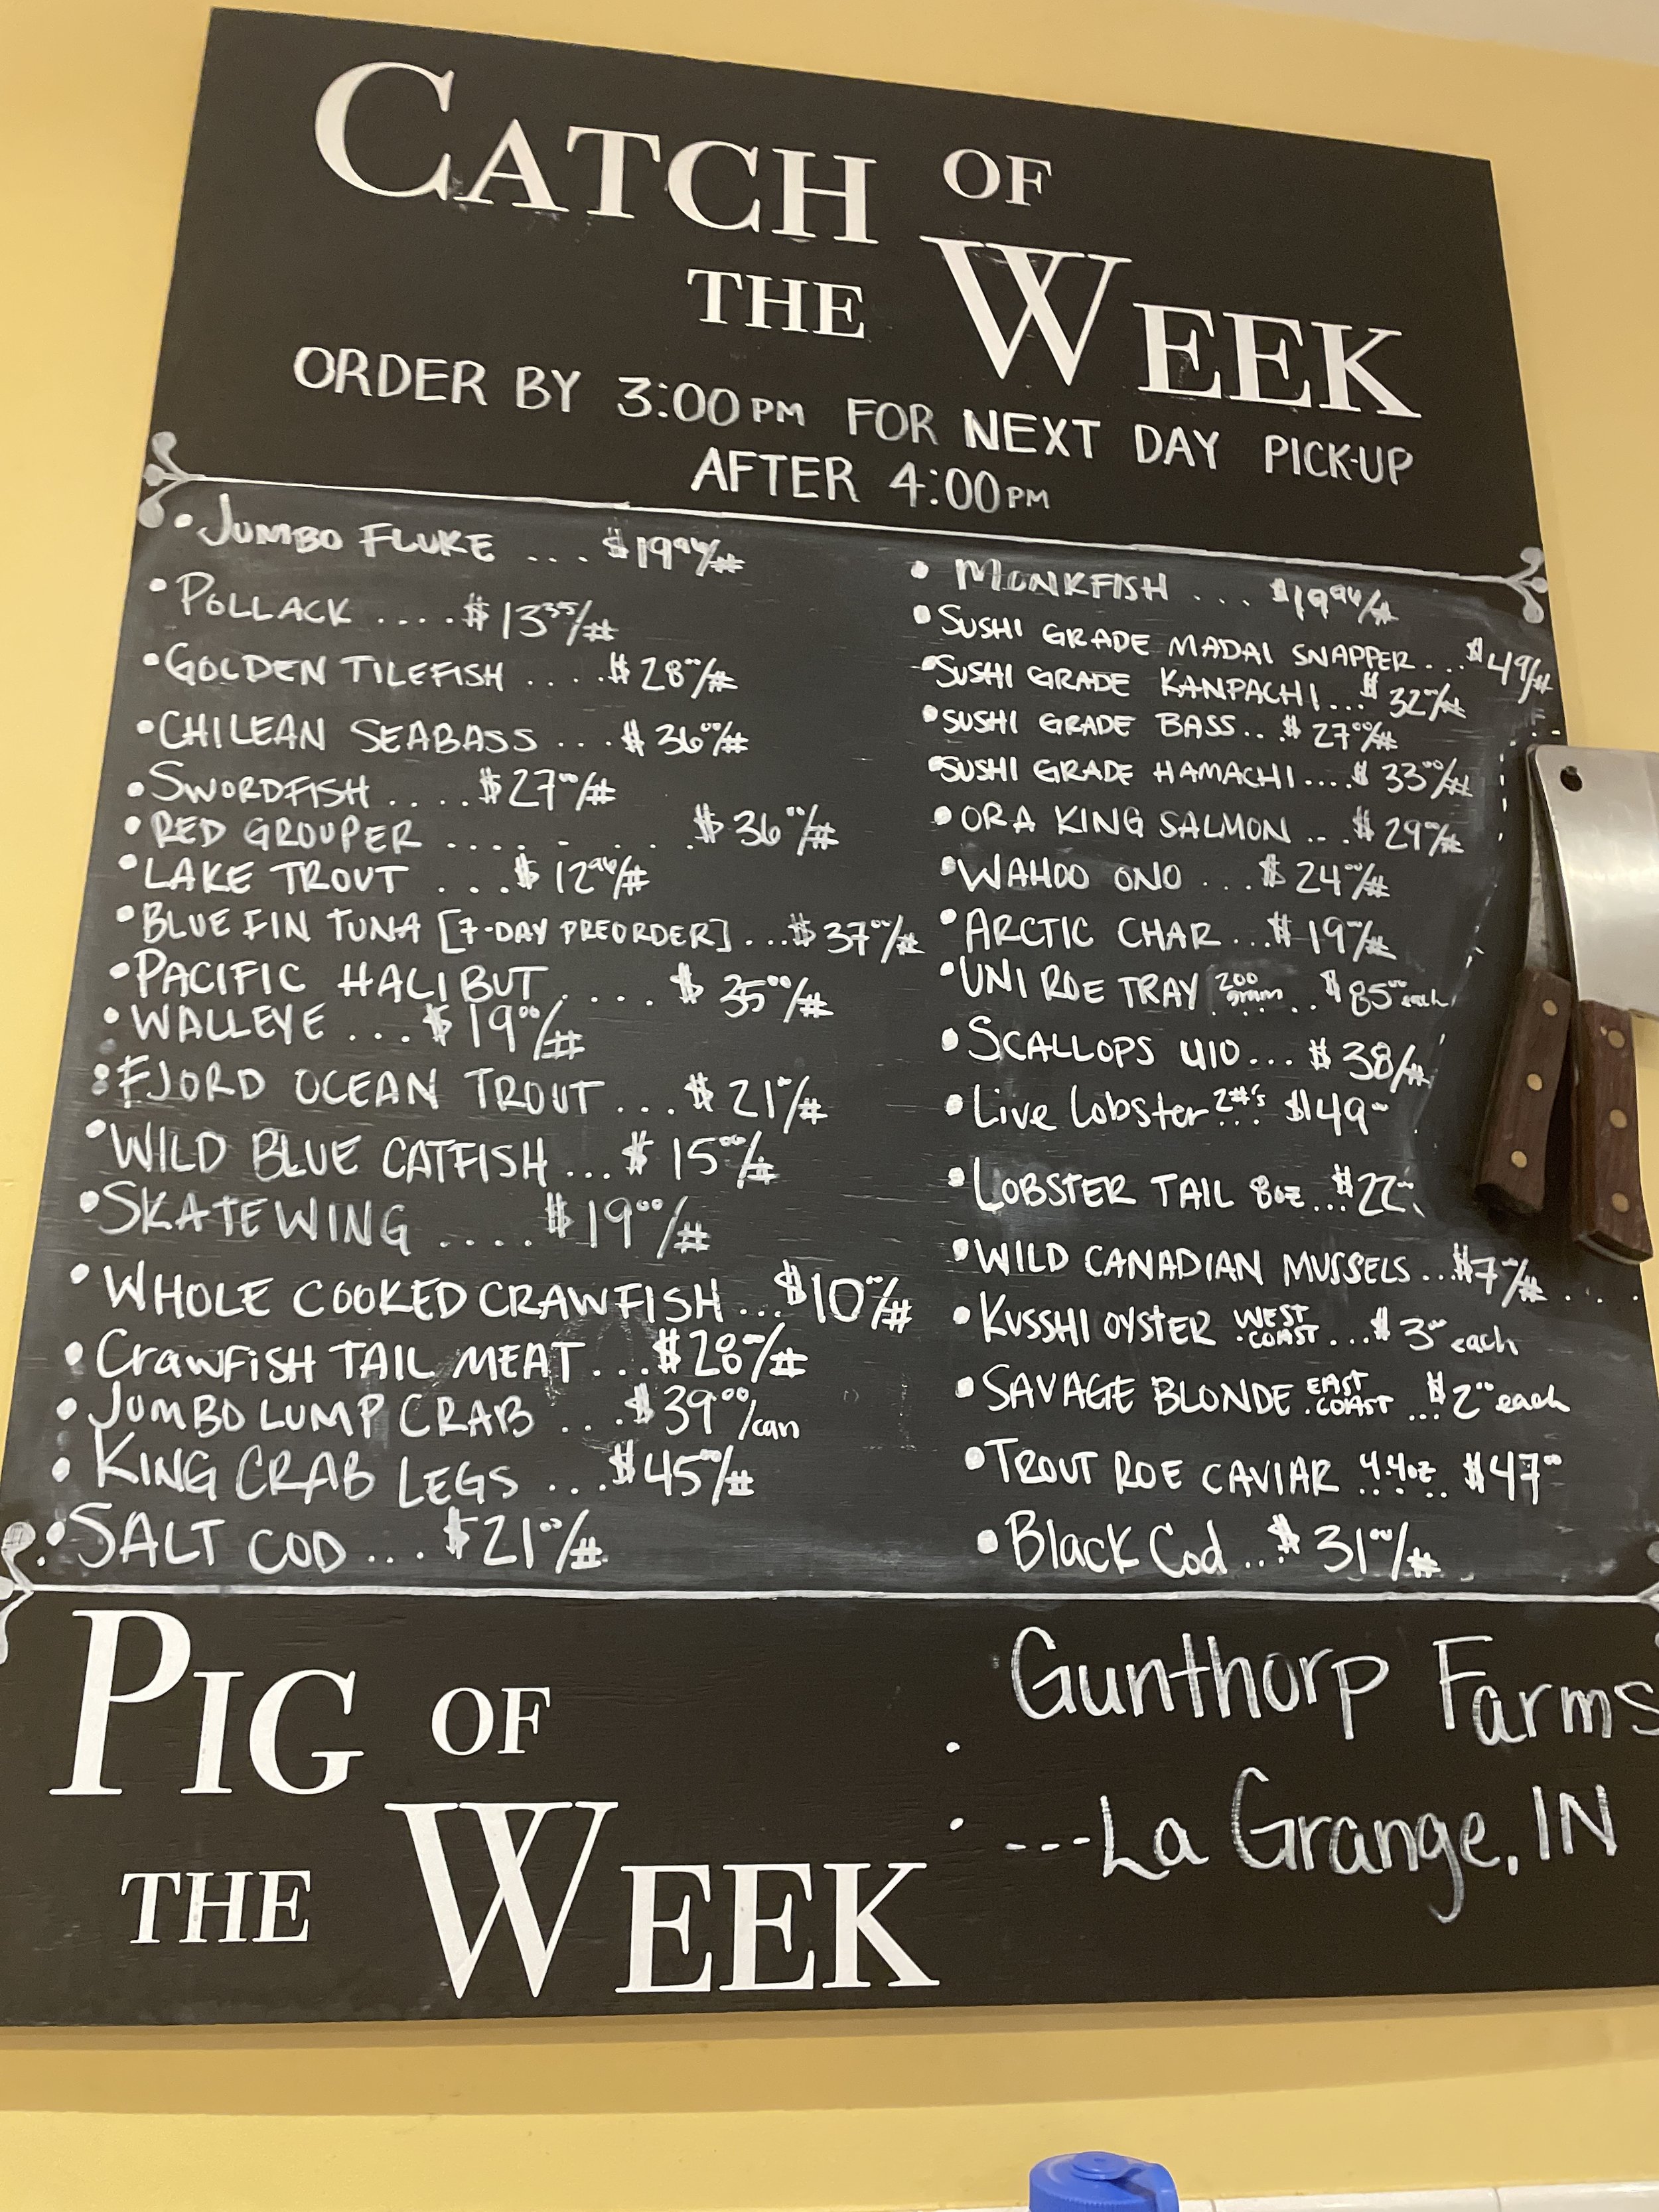 CATCH OF
THE WEEK
ORDER BY 3:00PM FOR NEXT DAY PICK-UP
AFTER 4:00PM
• JUMBO FLUKE ... $19.96/#
• POLLACK .... $13.35/#
• GOLDEN TILEFISH .... $28.00/#
• CHILEAN SEABASS ... $36.00/#
• SWORDFISH .... $27.00/#
• RED GROUPER .... $36.00/#
• LAKE TROUT ... $12.96/#
• BLUE FIN TUNA [7-DAY PREORDER] ... $37.00/#
• PACIFIC HALIBUT .... $35.00/#
• WALLEYE ... $19.00/#
• FJORD OCEAN TROUT ... $21.00/#
• WILD BLUE CATFISH ... $15.00/#
• SKATEWING .... $19.00/#
• WHOLE COOKED CRAWFISH ... $10.00/#
• CRAWFISH TAIL MEAT ... $28.00/#
• JUMBO LUMP CRAB ... $39.00/can
• KING CRAB LEGS ... $45.00/#
• SALT COD ... $21.00/#
• MONKFISH ... $19.96/#
• SUSHI GRADE MADAI SNAPPER ... $49/#
• SUSHI GRADE KANPACHI ... $32.00/#
• SUSHI GRADE BASS .. $27.00/#
• SUSHI GRADE HAMACHI .... $33.00/#
• ORA KING SALMON ... $29.00/#
• WAHOO ONO ... $24.00/#
• ARCTIC CHAR ... $19.00/#
• UNI ROE TRAY 200 gram ... $85.00 each
• SCALLOPS U10 ... $38/#
• Live Lobster 2#'s ... $149.00
• LOBSTER TAIL 8oz ... $22.00
• WILD CANADIAN MUSSELS ... $7.00/#
• KUSSHI OYSTER WEST COAST ... $3.00 each
• SAVAGE BLONDE EAST COAST ... $2.00 each
• TROUT ROE CAVIAR 4.4oz .... $47.00
• Black Cod ... $31.00/#
PIG OF
THE WEEK
Gunthorp Farms
---La Grange, IN